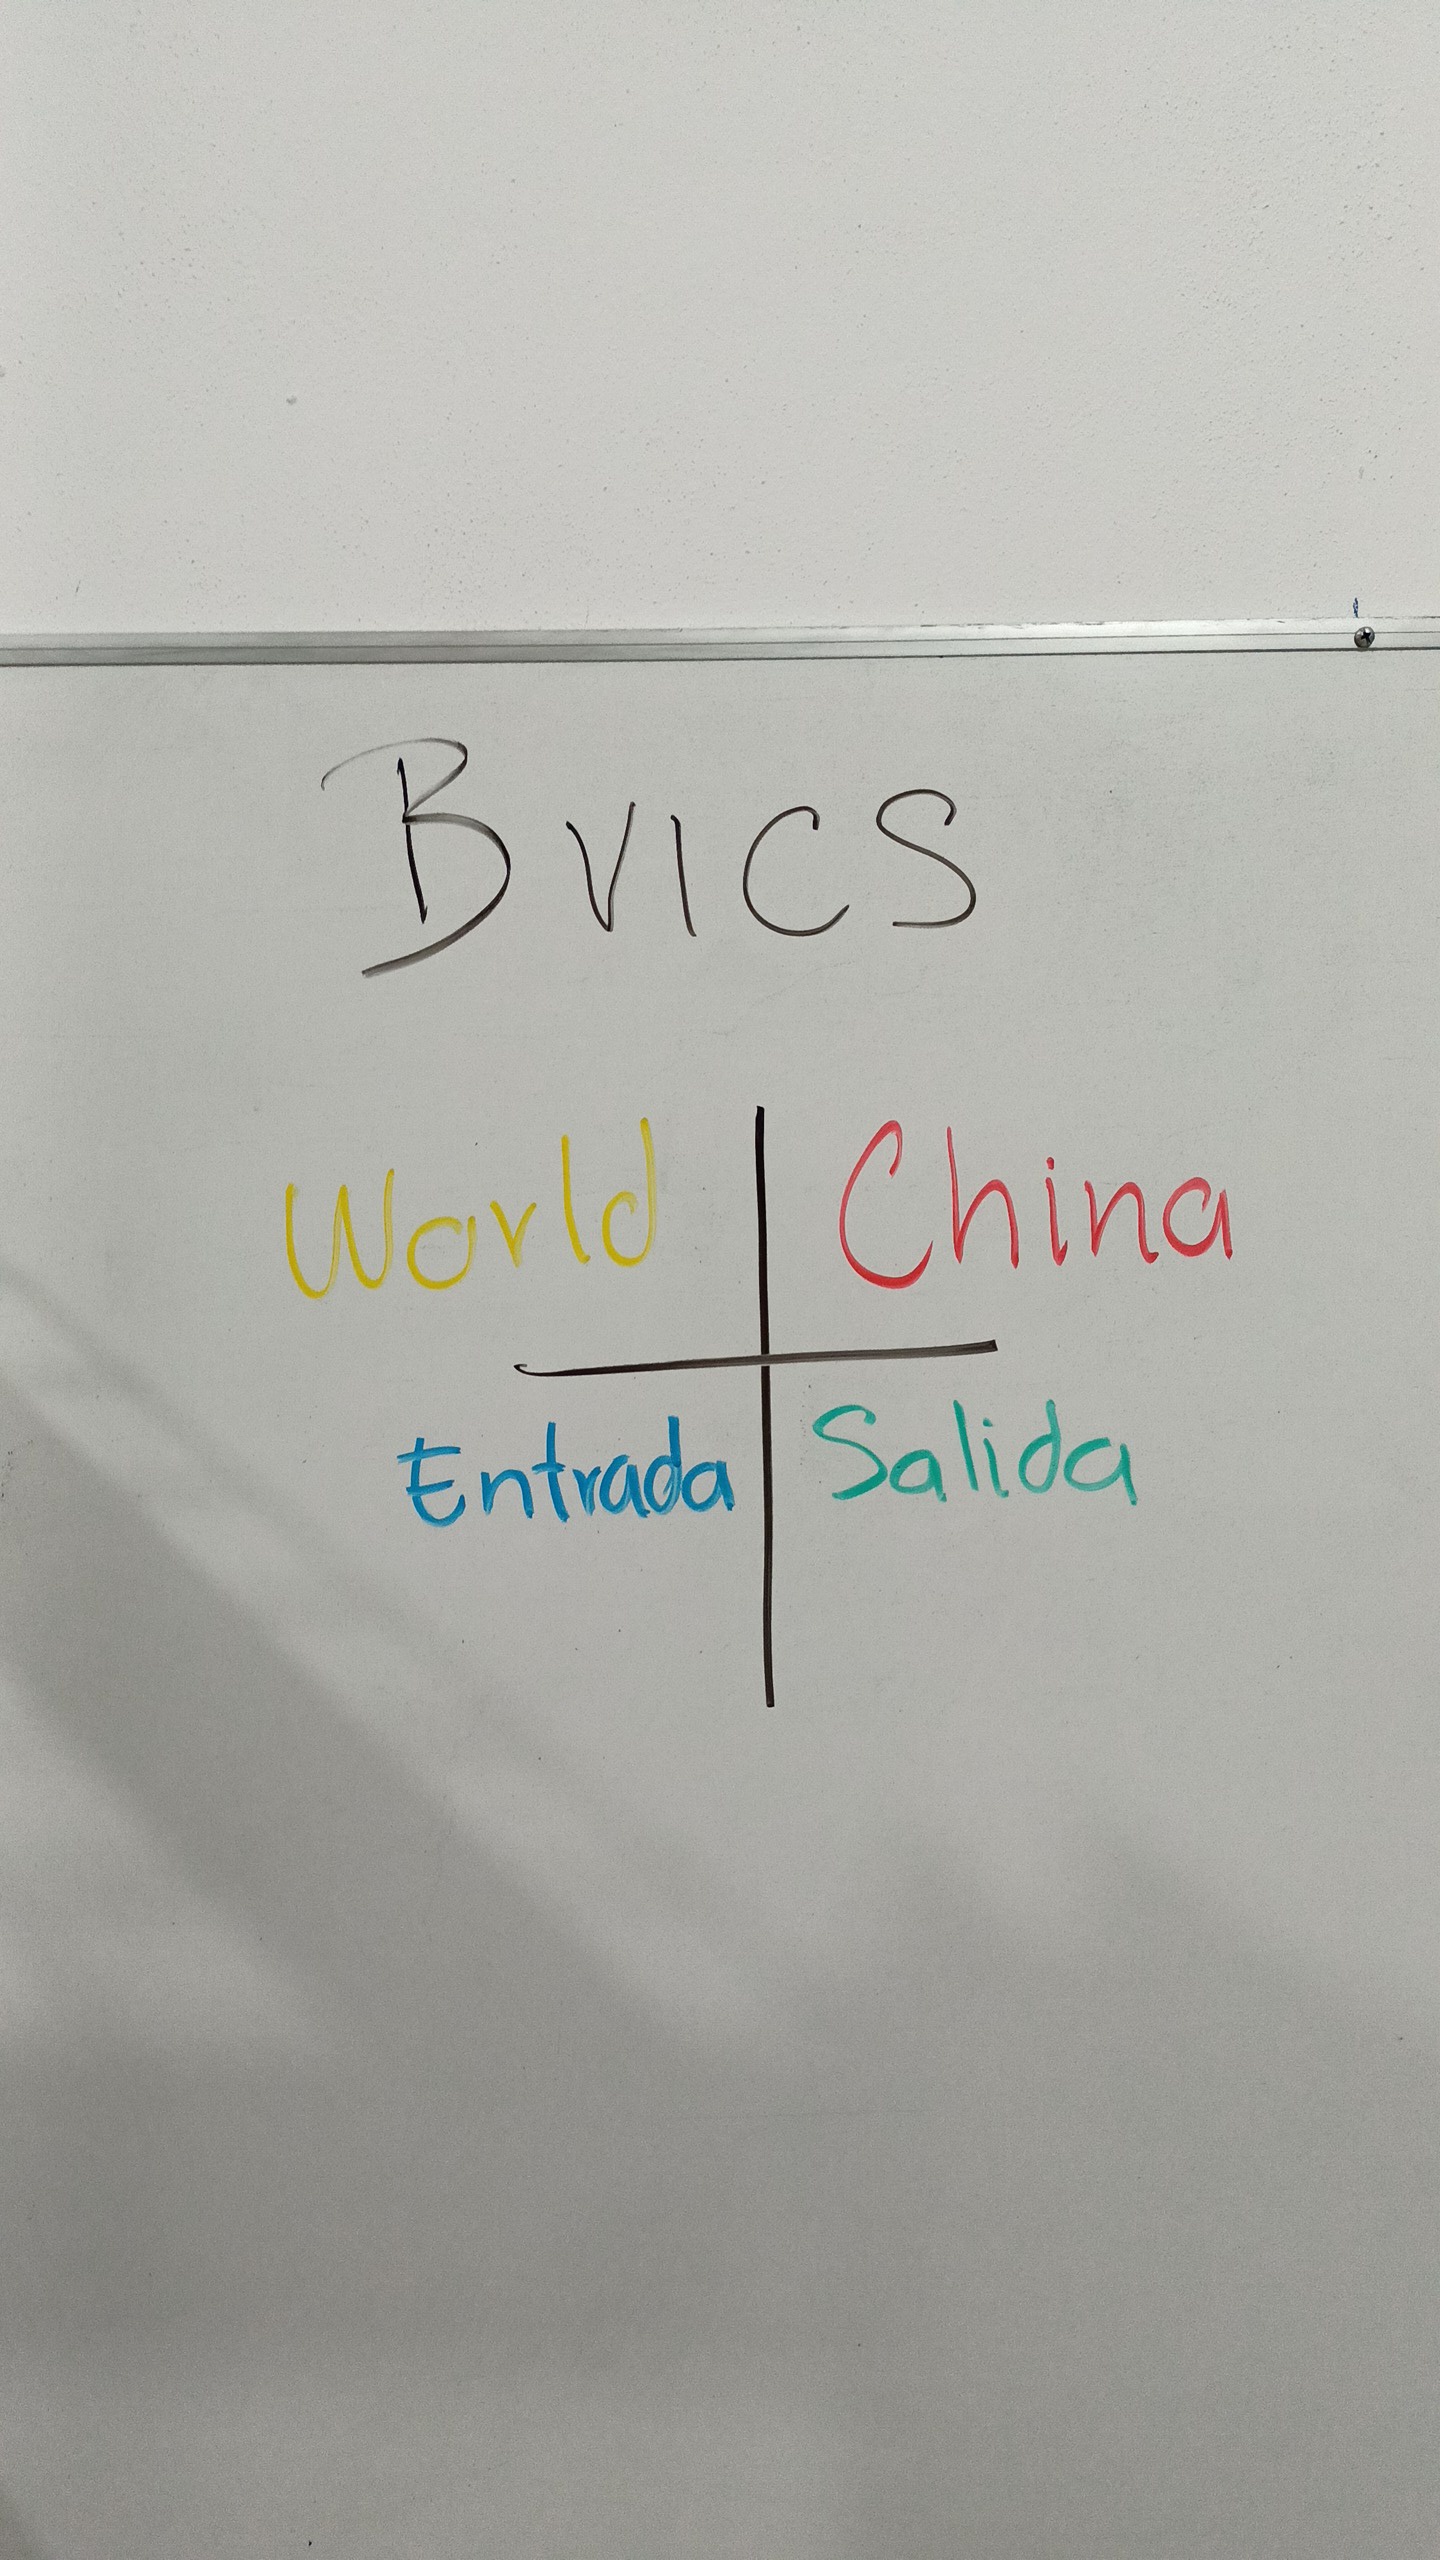 BVICS
World China
Entrada Salida